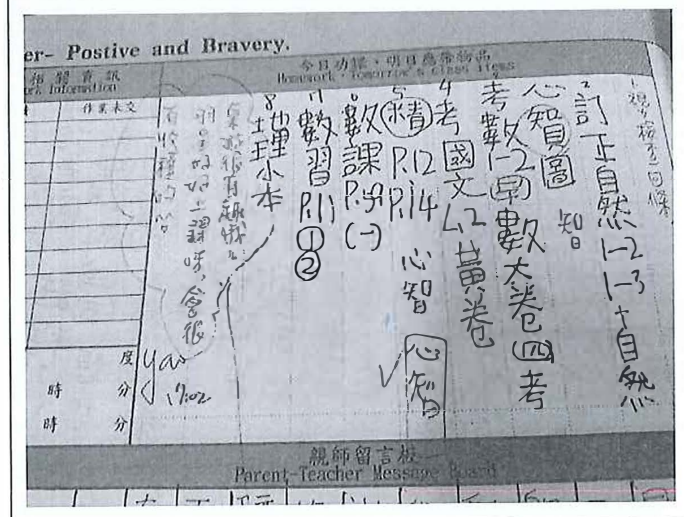 er- Postive and Bravery.
相關資訊
rk Information
今日功課、明日應帶物品
Homework、Tomorrow's Class Items
作業未交
1.視力檢查回條
2訂正自然1-2 1-3+自然
心智圖 智
3考數1-2(早)數大卷(四)考
4考國文L2黃卷
5(精)P.12 P.14 心智 心智
6數課P.59(一)
7數習P.11①②
8地理小本
桌遊很有趣哦!
yao
17:02
度
時 分
時 分
親師留言板
Parent-Teacher Message Board